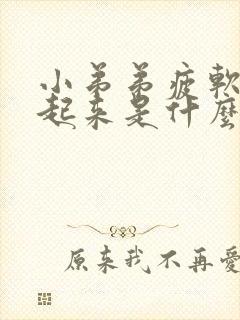 小弟弟疲軟
起来是什麼
原来我不再愛